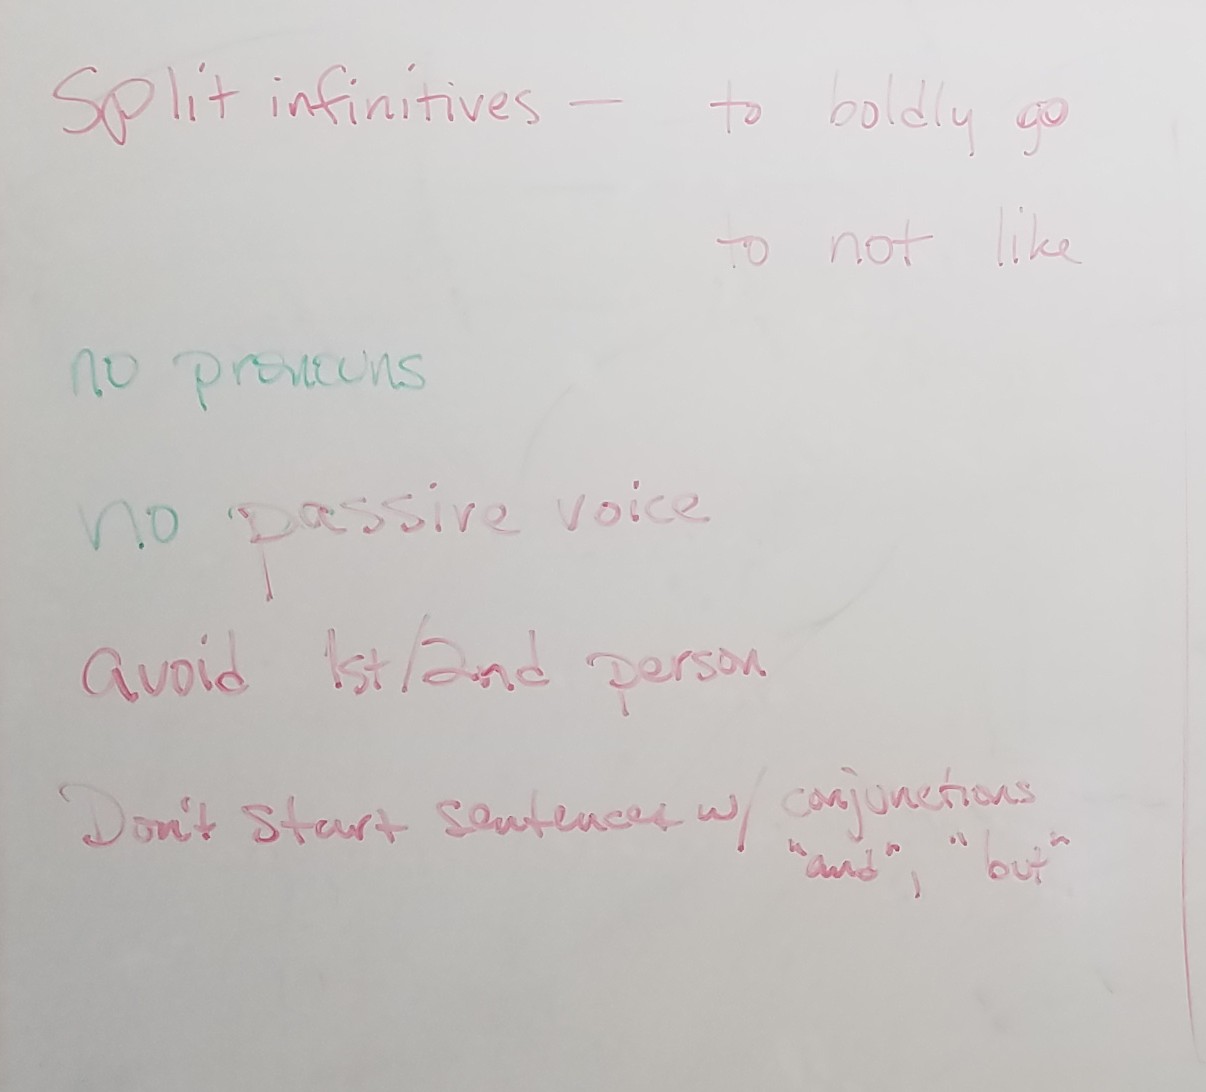 Split infinitives — to boldly go
to not like
no pronouns
no passive voice
avoid 1st/2nd person
Don't start sentences w/ conjunctions
"and", "but"